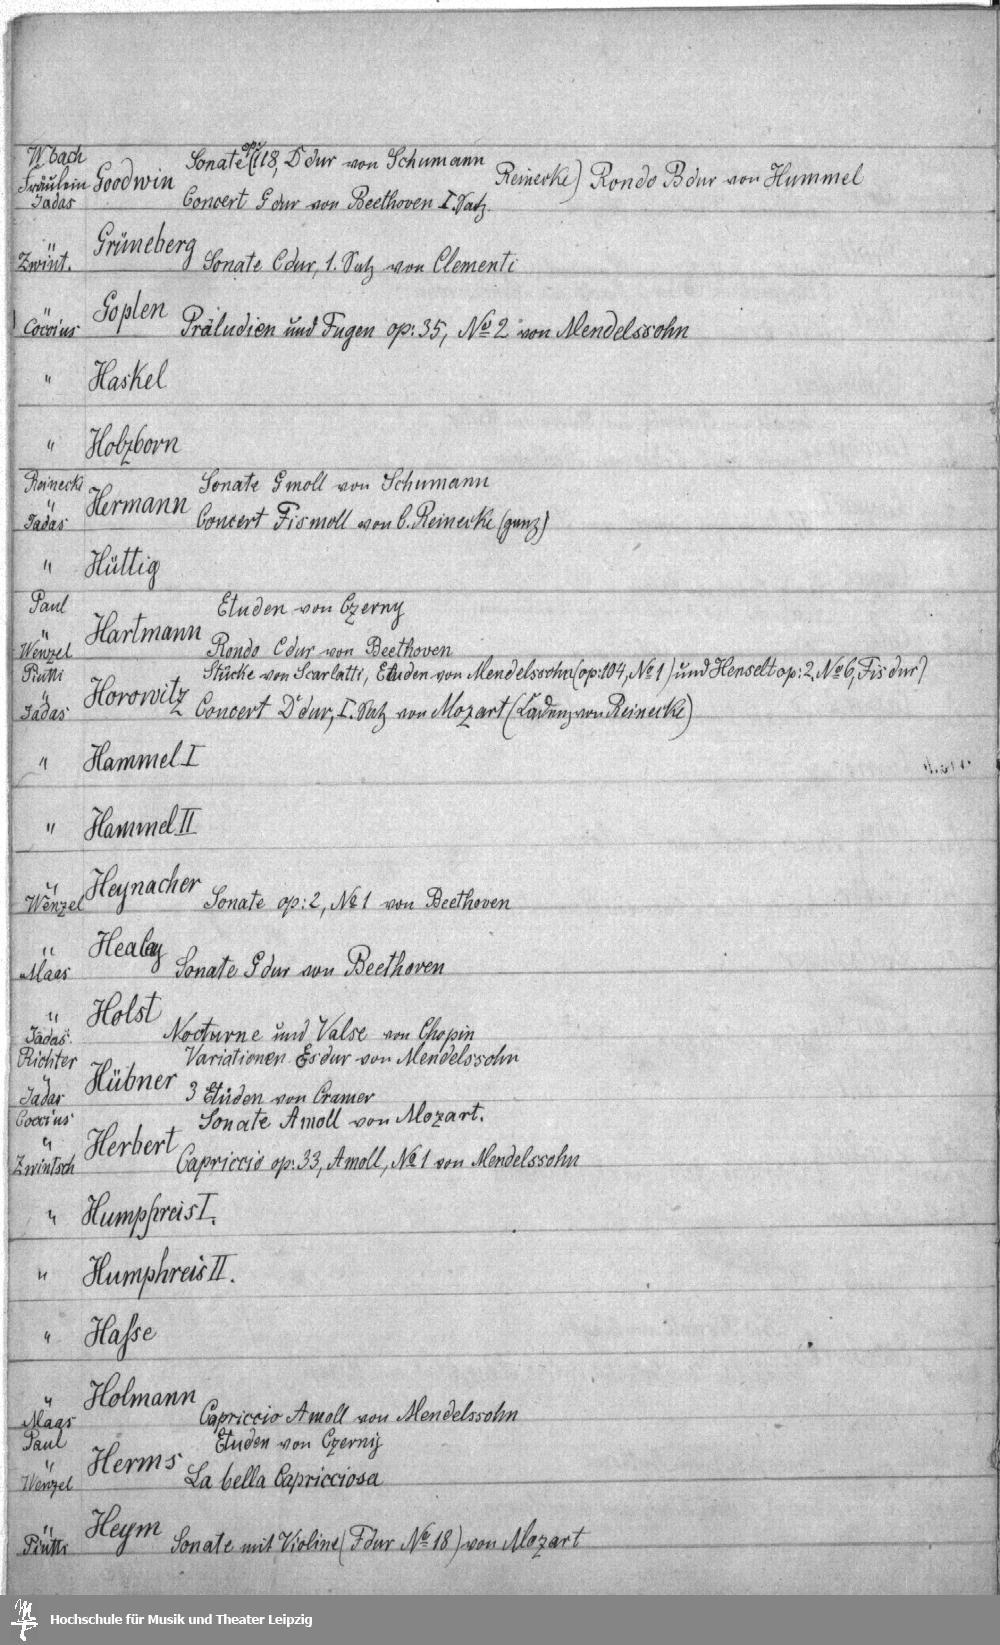 Wbach Sonate (op: 118, D dur von Schumann
Fräulein Goodwin Reinecke) Rondo B dur von Hummel
Jadas Concert G dur von Beethoven I. Satz.
" Grüneberg
Zwint. Sonate C dur, 1. Satz von Clementi
" Goplen
Coccius Präludien und Fugen op: 35, No 2 von Mendelssohn
" Haskel
" Holzborn
Reinecke Sonate G moll von Schumann
" Hermann
Jadas Concert Fis moll von C. Reinecke (ganz)
" Hüttig
Paul Etuden von Czerny
" Hartmann
Wenzel Rondo C dur von Beethoven
Piutti Stücke von Scarlatti, Etuden von Mendelssohn (op: 104, No 1) und Henselt op: 2, No 6, Fis dur)
" Horowitz
Jadas Concert D dur, I. Satz von Mozart (Cadenz von Reinecke)
" Hammel I
" Hammel II
" Heynacher
Wenzel Sonate op: 2, No 1 von Beethoven
" Healey
Maas Sonate G dur von Beethoven
" Holst
Jadas. Nocturne und Valse von Chopin
Richter Variationen Es dur von Mendelssohn
" Hübner
Jadas 3 Etüden von Cramer
Coccius Sonate A moll von Mozart.
" Herbert
Zwintsch Capriccio op: 33, A moll, No 1 von Mendelssohn
" Humphreis I.
" Humphreis II.
" Hasse
" Holmann
Maas Capriccio A moll von Mendelssohn
Paul Etuden von Czerny
" Herms
Wenzel La bella Capricciosa
" Heym
Piutti Sonate mit Violine (F dur No 18) von Mozart
Hochschule für Musik und Theater Leipzig